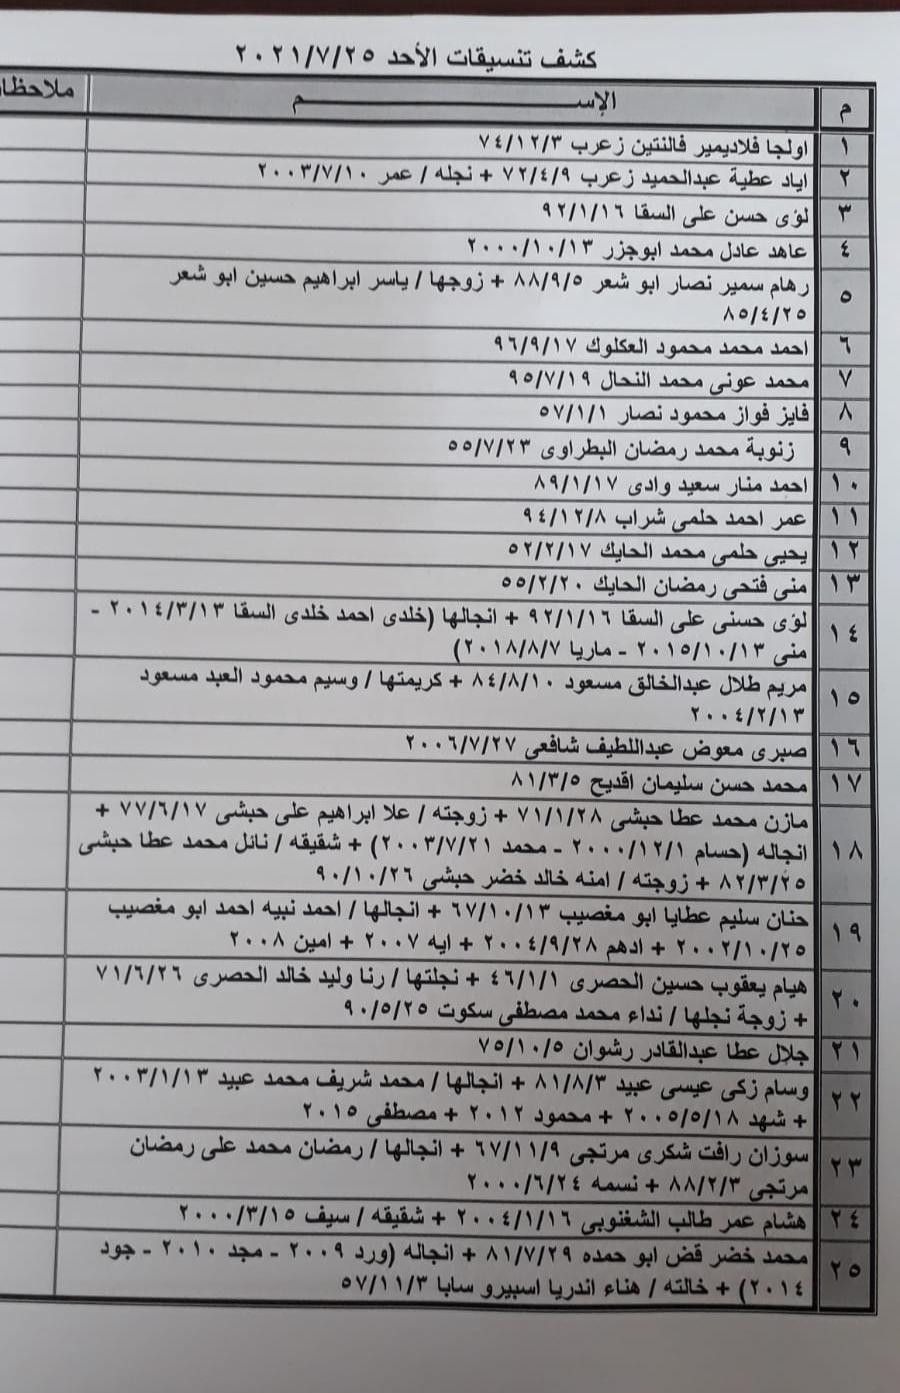 كشف تنسيقات الأحد ٢٠٢١/٧/٢٥
م الإســـــــــم ملاحظا
١ اولجا فلاديمير فالنتين زعرب ٧٤/١٢/٣
٢ اياد عطية عبدالحميد زعرب ٧٢/٤/٩ + نجله / عمر ٢٠٠٣/٧/١٠
٣ لؤى حسن على السقا ٩٢/١/١٦
٤ عاهد عادل محمد ابوجزر ٢٠٠٠/١٠/١٣
٥ رهام سمير نصار ابو شعر ٨٨/٩/٥ + زوجها / ياسر ابراهيم حسين ابو شعر
٨٥/٤/٢٥
٦ احمد محمد محمود العكلوك ٩٦/٩/١٧
٧ محمد عونى محمد النحال ٩٥/٧/١٩
٨ فايز فواز محمود نصار ٥٧/١/١
٩ زنوبة محمد رمضان البطراوى ٥٥/٧/٢٣
١٠ احمد منار سعيد وادى ٨٩/١/١٧
١١ عمر احمد حلمى شراب ٩٤/١٢/٨
١٢ يحيى حلمى محمد الحايك ٥٢/٢/١٧
١٣ منى فتحى رمضان الحايك ٥٥/٢/٢٠
١٤ لؤى حسنى على السقا ٩٢/١/١٦ + انجالها (خلدى احمد خلدى السقا ٢٠١٤/٣/١٣ -
منى ٢٠١٥/١٠/١٣ - ماريا ٢٠١٨/٨/٧)
١٥ مريم طلال عبدالخالق مسعود ٨٤/٨/١٠ + كريمتها / وسيم محمود العبد مسعود
٢٠٠٤/٢/١٣
١٦ صبرى معوض عبداللطيف شافعى ٢٠٠٦/٧/٢٧
١٧ محمد حسن سليمان اقديح ٨١/٣/٥
١٨ مازن محمد عطا حبشى ٧١/١/٢٨ + زوجته / علا ابراهيم على حبشى ٧٧/٦/١٧ +
انجاله (حسام ٢٠٠٠/١٢/١ - محمد ٢٠٠٣/٧/٢١) + شقيقه / نائل محمد عطا حبشى
٨٢/٣/٢٥ + زوجته / امنه خالد خضر حبشى ٩٠/١٠/٢٦
١٩ حنان سليم عطايا ابو مغصيب ٦٧/١٠/١٣ + انجالها / احمد نبيه احمد ابو مغصيب
٢٠٠٢/١٠/٢٥ + ادهم ٢٠٠٤/٩/٢٨ + ايه ٢٠٠٧ + امين ٢٠٠٨
٢٠ هيام يعقوب حسين الحصرى ٤٦/١/١ + نجلتها / رنا وليد خالد الحصرى ٧١/٦/٢٦
+ زوجة نجلها / نداء محمد مصطفى سكوت ٩٠/٥/٢٥
٢١ جلال عطا عبدالقادر رشوان ٧٥/١٠/٥
٢٢ وسام زكى عيسى عبيد ٨١/٨/٣ + انجالها / محمد شريف محمد عبيد ٢٠٠٣/١/١٣
+ شهد ٢٠٠٥/٥/١٨ + محمود ٢٠١٢ + مصطفى ٢٠١٥
٢٣ سوزان رافت شكرى مرتجى ٦٧/١١/٩ + انجالها / رمضان محمد على رمضان
مرتجى ٨٨/٢/٣ + نسمه ٢٠٠٠/٦/٢٤
٢٤ هشام عمر طالب الشغنوبى ٢٠٠٤/١/١٦ + شقيقه / سيف ٢٠٠٠/٣/١٥
٢٥ محمد خضر قض ابو حمده ٨١/٧/٢٩ + انجاله (ورد ٢٠٠٩ - مجد ٢٠١٠ - جود
٢٠١٤) + خالته / هناء اندريا اسبيرو سابا ٥٧/١١/٣